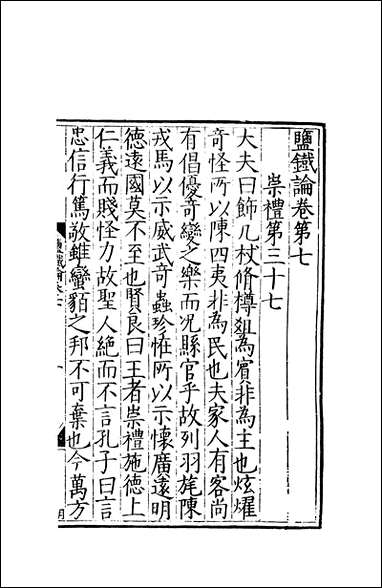 鹽鐵論卷第七
崇禮第三十七
大夫曰飾几杖脩樽俎為賓非為主也炫燿
奇怪所以陳四夷非為民也夫家人有客尚
有倡優奇變之樂而况縣官乎故列羽旄陳
戎馬以示威武奇蟲珍怪所以示懷廣遠明
德遠國莫不至也賢良曰王者崇禮施德上
仁義而賤怪力故聖人絶而不言孔子曰言
忠信行篤敬雖蠻貊之邦不可棄也今萬方